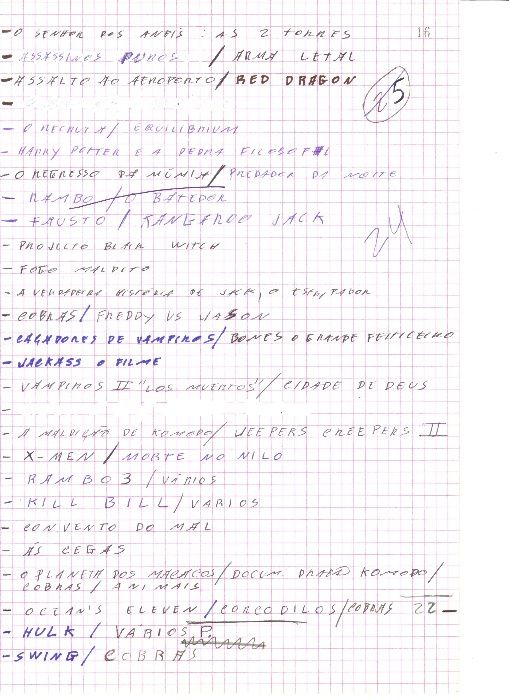 16
- O SENHOR DOS ANEIS : AS 2 TORRES
- ASSASSINOS PUROS / ARMA LETAL
- ASSALTO AO AEROPORTO / RED DRAGON
25
-
- O RECRUTA / EQUILIBRIUM
- HARRY POTTER E A PEDRA FILOSOFAL
- O REGRESSO DA MÚMIA / PREDADOR DA NOITE
- RAMBO / O BATEDOR
- FAUSTO / KANGAROO JACK
24
- PROJECTO BLAIR WITCH
- FOGO MALDITO
- A VERDADEIRA HISTÓRIA DE JACK, O ESTRIPADOR
- COBRAS / FREDDY VS JASON
- CAÇADORES DE VAMPIROS / BONES O GRANDE FEITICEIRO
- JACKASS O FILME
- VAMPIROS II "LOS MUERTOS" / CIDADE DE DEUS
-
- A MALDIÇÃO DE KOMODO / JEEPERS CREEPERS II
- X-MEN / MORTE NO NILO
- RAMBO 3 / VÁRIOS
- KILL BILL / VARIOS
- CONVENTO DO MAL
- ÁS CEGAS
- O PLANETA DOS MACACOS / DOCUM. DRAGÃO KOMODO /
COBRAS / ANIMAIS
- OCEAN'S ELEVEN / CORCODILOS / COBRAS 22 -
- HULK / VÁRIOS P.
- SWING / COBRAS